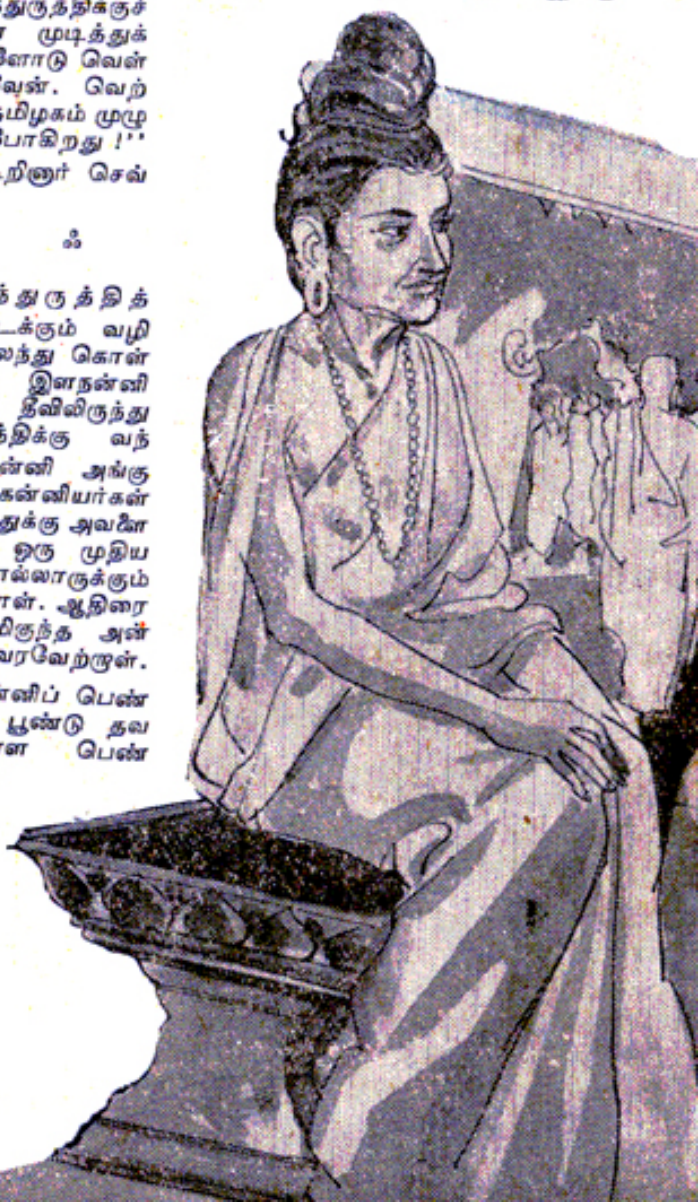 துருத்திக்குச்
முடித்துக்
ளோடு வெள்
வேன். வெற்
தமிழகம் முழு
போகிறது !''
றினார் செவ்
ஃ
ந்துருத்தித்
டக்கும் வழி
லந்து கொள்
இளநன்னி
தீவிலிருந்து
த்திக்கு வந்
ன்னி அங்கு
கன்னியர்கள்
துக்கு அவளை
ஒரு முதிய
ால்லாருக்கும்
ாள். ஆதிரை
மிகுந்த அன்
வரவேற்றாள்.
ன்னிப் பெண்
பூண்டு தவ
ள பெண்